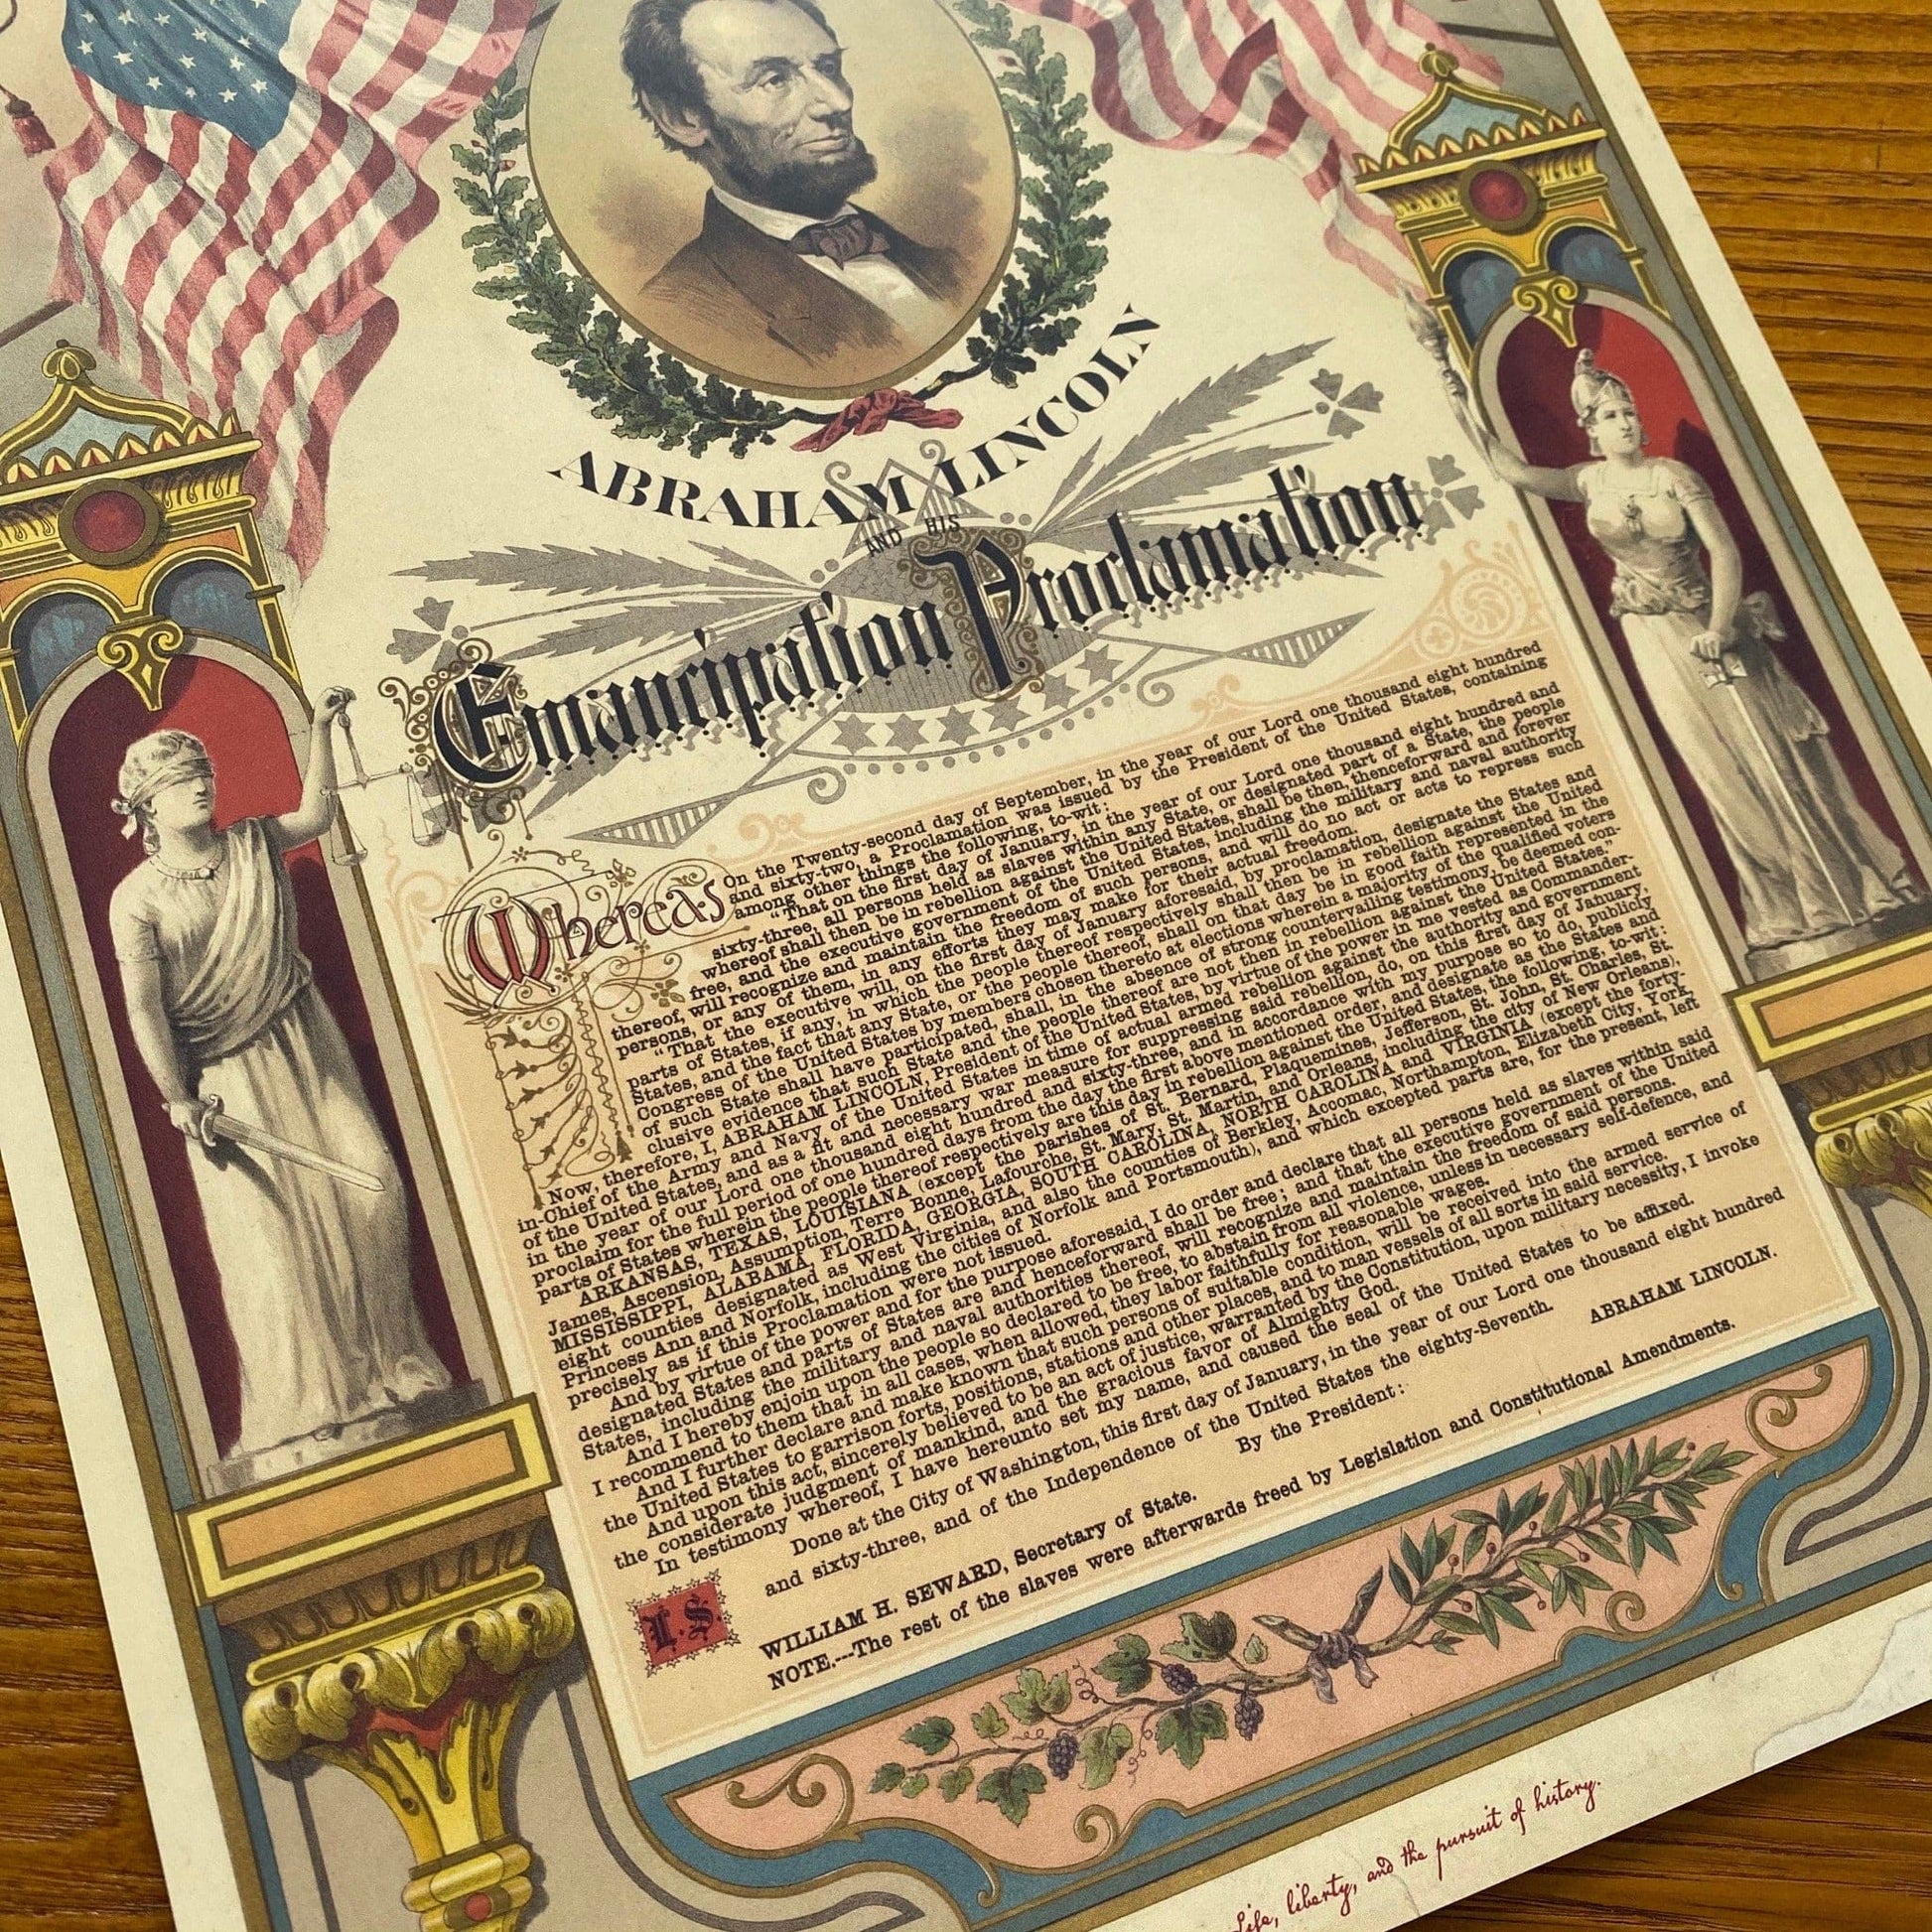 ABRAHAM LINCOLN
AND HIS
Emancipation Proclamation
Whereas On the Twenty-second day of September, in the year of our Lord one thousand eight hundred
and sixty-two, a Proclamation was issued by the President of the United States, containing
among other things the following, to-wit:
“That on the first day of January, in the year of our Lord one thousand eight hundred and
sixty-three, all persons held as slaves within any State, or designated part of a State, the people
whereof shall then be in rebellion against the United States, shall be then, thenceforward and forever
free, and the executive government of the United States, including the military and naval authority
thereof, will recognize and maintain the freedom of such persons, and will do no act or acts to repress such
persons, or any of them, in any efforts they may make for their actual freedom.
“That the executive will, on the first day of January aforesaid, by proclamation, designate the States and
parts of States, if any, in which the people thereof respectively shall then be in rebellion against the United
States, and the fact that any State, or the people thereof, shall on that day be in good faith represented in the
Congress of the United States by members chosen thereto at elections wherein a majority of the qualified voters
of such State shall have participated, shall, in the absence of strong countervailing testimony, be deemed con-
clusive evidence that such State and the people thereof are not then in rebellion against the United States.”
Now, therefore, I, ABRAHAM LINCOLN, President of the United States, by virtue of the power in me vested as Commander-
in-Chief of the Army and Navy of the United States in time of actual armed rebellion against the authority and government
of the United States, and as a fit and necessary war measure for suppressing said rebellion, do, on this first day of January,
in the year of our Lord one thousand eight hundred and sixty-three, and in accordance with my purpose so to do, publicly
proclaim for the full period of one hundred days from the day the first above mentioned order, and designate as the States and
parts of States wherein the people thereof respectively are this day in rebellion against the United States, the following, to-wit:
ARKANSAS, TEXAS, LOUISIANA (except the parishes of St. Bernard, Plaquemines, Jefferson, St. John, St. Charles, St.
James, Ascension, Assumption, Terre Bonne, Lafourche, St. Mary, St. Martin, and Orleans, including the city of New Orleans),
MISSISSIPPI, ALABAMA, FLORIDA, GEORGIA, SOUTH CAROLINA, NORTH CAROLINA and VIRGINIA (except the forty-
eight counties designated as West Virginia, and also the counties of Berkley, Accomac, Northampton, Elizabeth City, York,
Princess Ann and Norfolk, including the cities of Norfolk and Portsmouth), and which excepted parts are, for the present, left
precisely as if this Proclamation were not issued.
And by virtue of the power and for the purpose aforesaid, I do order and declare that all persons held as slaves within said
designated States and parts of States are and henceforward shall be free; and that the executive government of the United
States, including the military and naval authorities thereof, will recognize and maintain the freedom of said persons.
And I hereby enjoin upon the people so declared to be free, to abstain from all violence, unless in necessary self-defence, and
I recommend to them that in all cases, when allowed, they labor faithfully for reasonable wages.
And I further declare and make known that such persons of suitable condition, will be received into the armed service of
the United States to garrison forts, positions, stations and other places, and to man vessels of all sorts in said service.
And upon this act, sincerely believed to be an act of justice, warranted by the Constitution, upon military necessity, I invoke
the considerate judgment of mankind, and the gracious favor of Almighty God.
In testimony whereof, I have hereunto set my name, and caused the seal of the United States to be affixed.
Done at the City of Washington, this first day of January, in the year of our Lord one thousand eight hundred
and sixty-three, and of the Independence of the United States the eighty-Seventh.
ABRAHAM LINCOLN.
By the President:
L.S.
WILLIAM H. SEWARD, Secretary of State.
NOTE.---The rest of the slaves were afterwards freed by Legislation and Constitutional Amendments.
Life, liberty, and the pursuit of history.